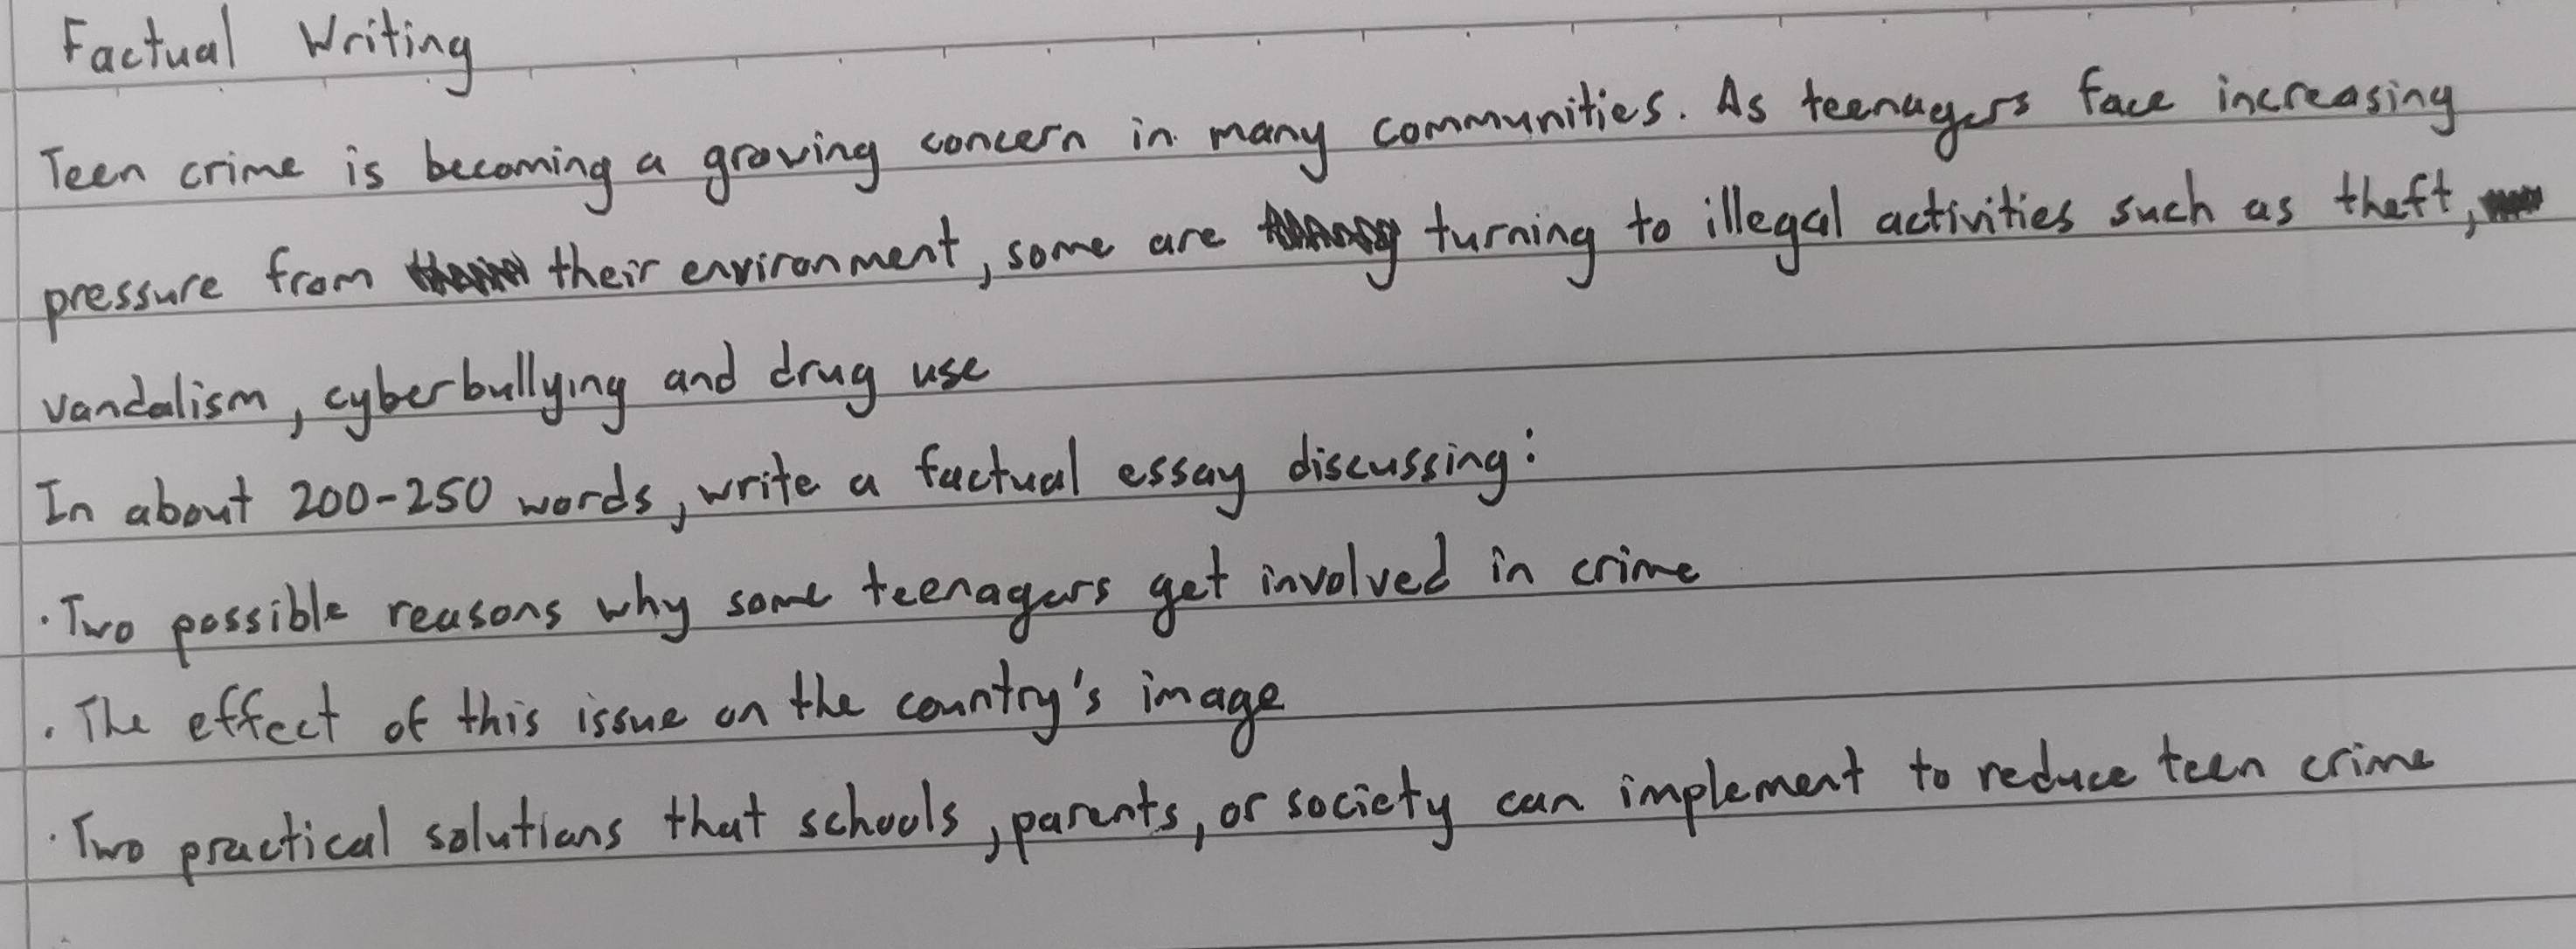 Factual Writing
Teen crime is becoming a growing concern in many communities. As teenagers face increasing
pressure from their environment, some are turning to illegal activities such as theft,
vandalism, cyberbullying and drug use
In about 200-250 words, write a factual essay discussing:
· Two possible reasons why some teenagers get involved in crime
· The effect of this issue on the country's image
· Two practical solutions that schools, parents, or society can implement to reduce teen crime